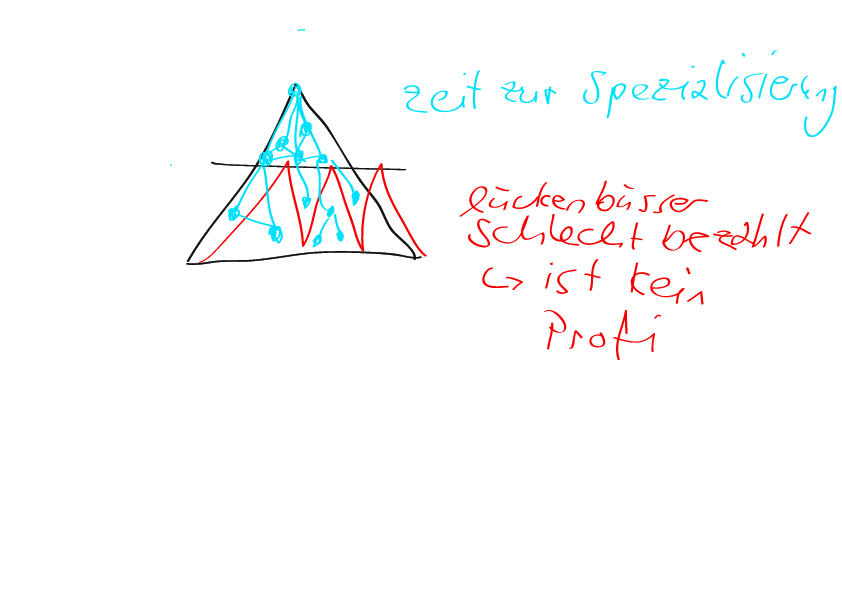 zeit zur Spezialisierung
lückenbüsser
schlecht bezahlt
↳ ist kein
Profi